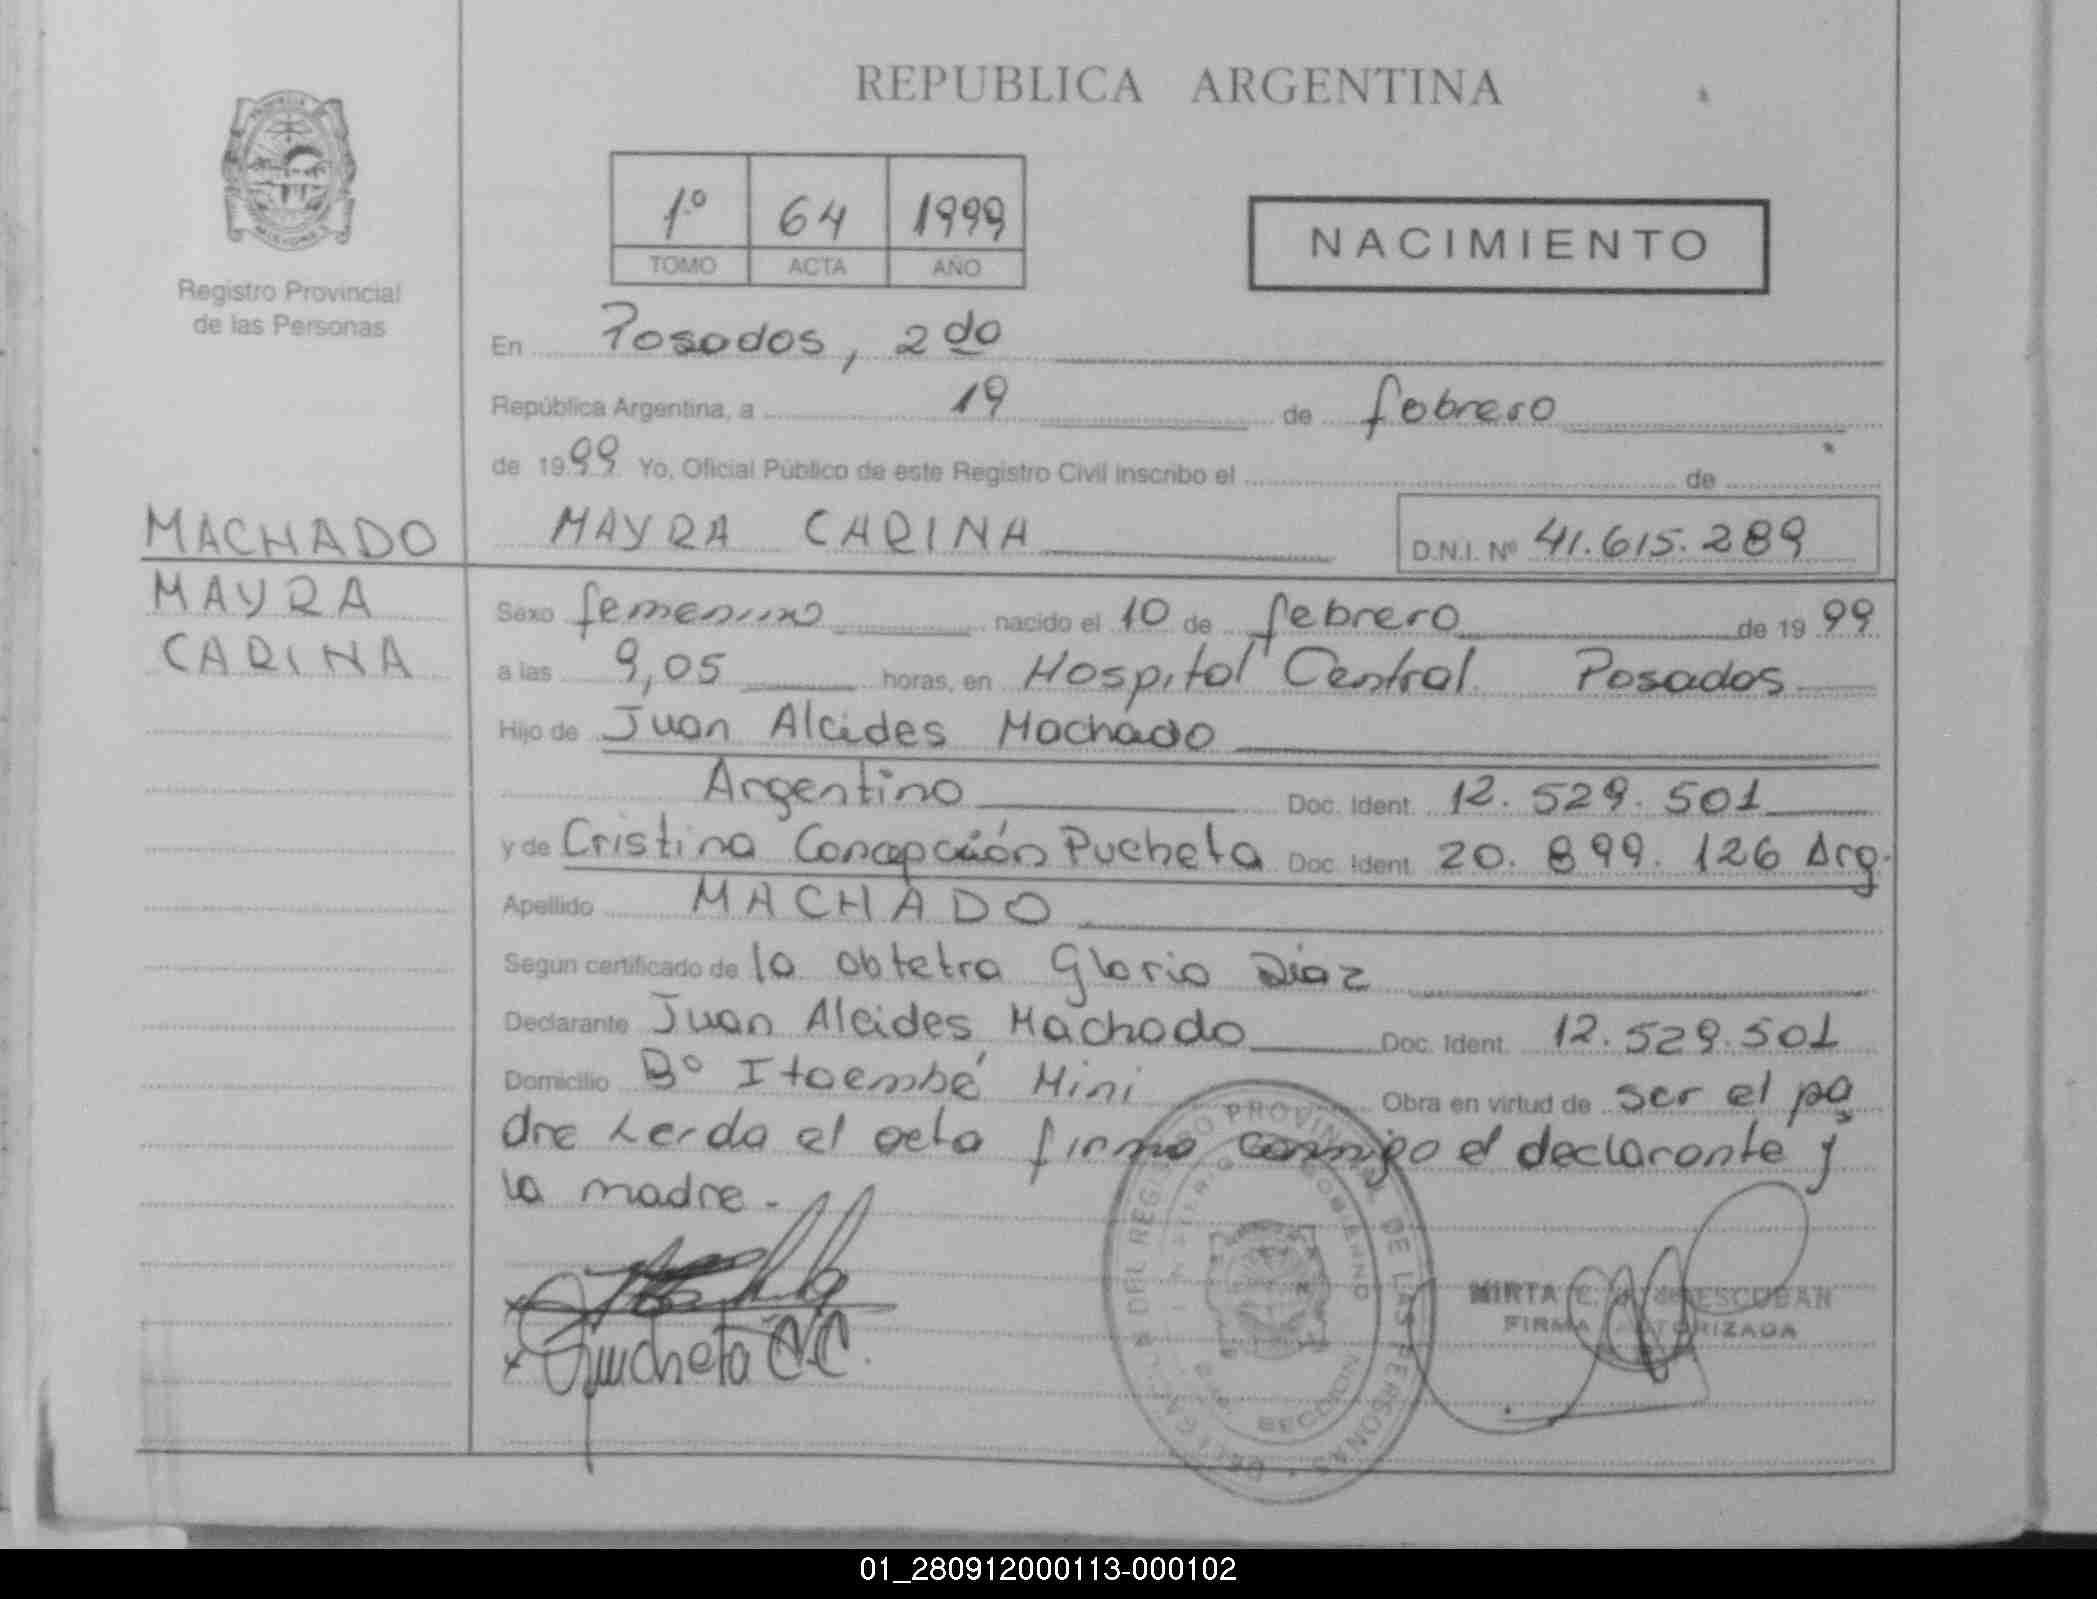 REPUBLICA ARGENTINA
Registro Provincial
de las Personas
1º 64 1999
TOMO ACTA AÑO
NACIMIENTO
En Posadas, 2do
República Argentina, a 19 de febrero
de 1999 Yo, Oficial Público de este Registro Civil inscribo el de
MACHADO
MAYRA
CARINA
MAYRA CARINA D.N.I. Nº 41.615.289
Sexo femenino nacido el 10 de febrero de 1999
a las 9,05 horas, en Hospital Central Posadas
Hijo de Juan Alcides Machado
Argentino Doc. Ident. 12.529.501
y de Cristina Concepción Pucheta Doc. Ident. 20.899.126 Arg.
Apellido MACHADO
Segun certificado de la obtetra Gloria Diaz
Declarante Juan Alcides Machado Doc. Ident. 12.529.501
Domicilio Bº Itaembé Mini Obra en virtud de ser el pa
dre Leida el acta firma conmigo el declarante y
la madre.-
Pucheta C.C.
MIRTA C. de ESCOBAR
FIRMA AUTORIZADA
DEL REGISTRO PROVINCIAL DE LAS PERSONAS
MINISTERIO GOBIERNO
SECCION
01_280912000113-000102